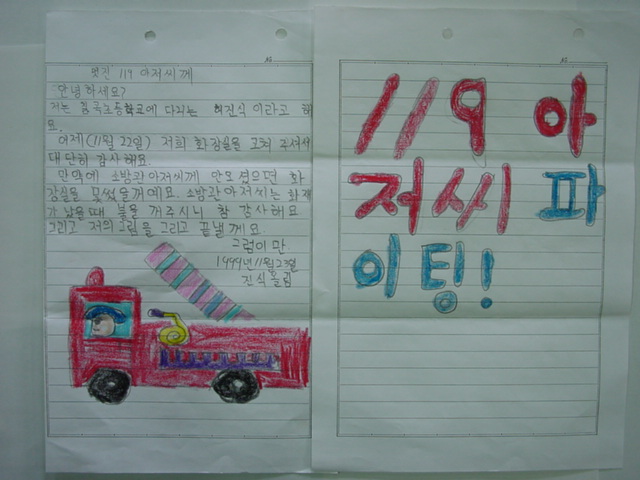 멋진 119 아저씨께
안녕하세요?
저는 중곡초등학교에 다니는 허진식이라고 해
요.
어제(11월 22일) 저희 화장실을 고쳐 주셔서
대단히 감사해요.
만약에 소방관아저씨께 안오셨으면 화
장실을 못썼을꺼예요. 소방관아저씨는 화재
가 났을때 불을 꺼주시니 참 감사해요
그리고 저의그림을 그리고 끝낼께요.
그럼이만
1999년 11월 23일
진식올림
119 아
저씨 파
이팅!